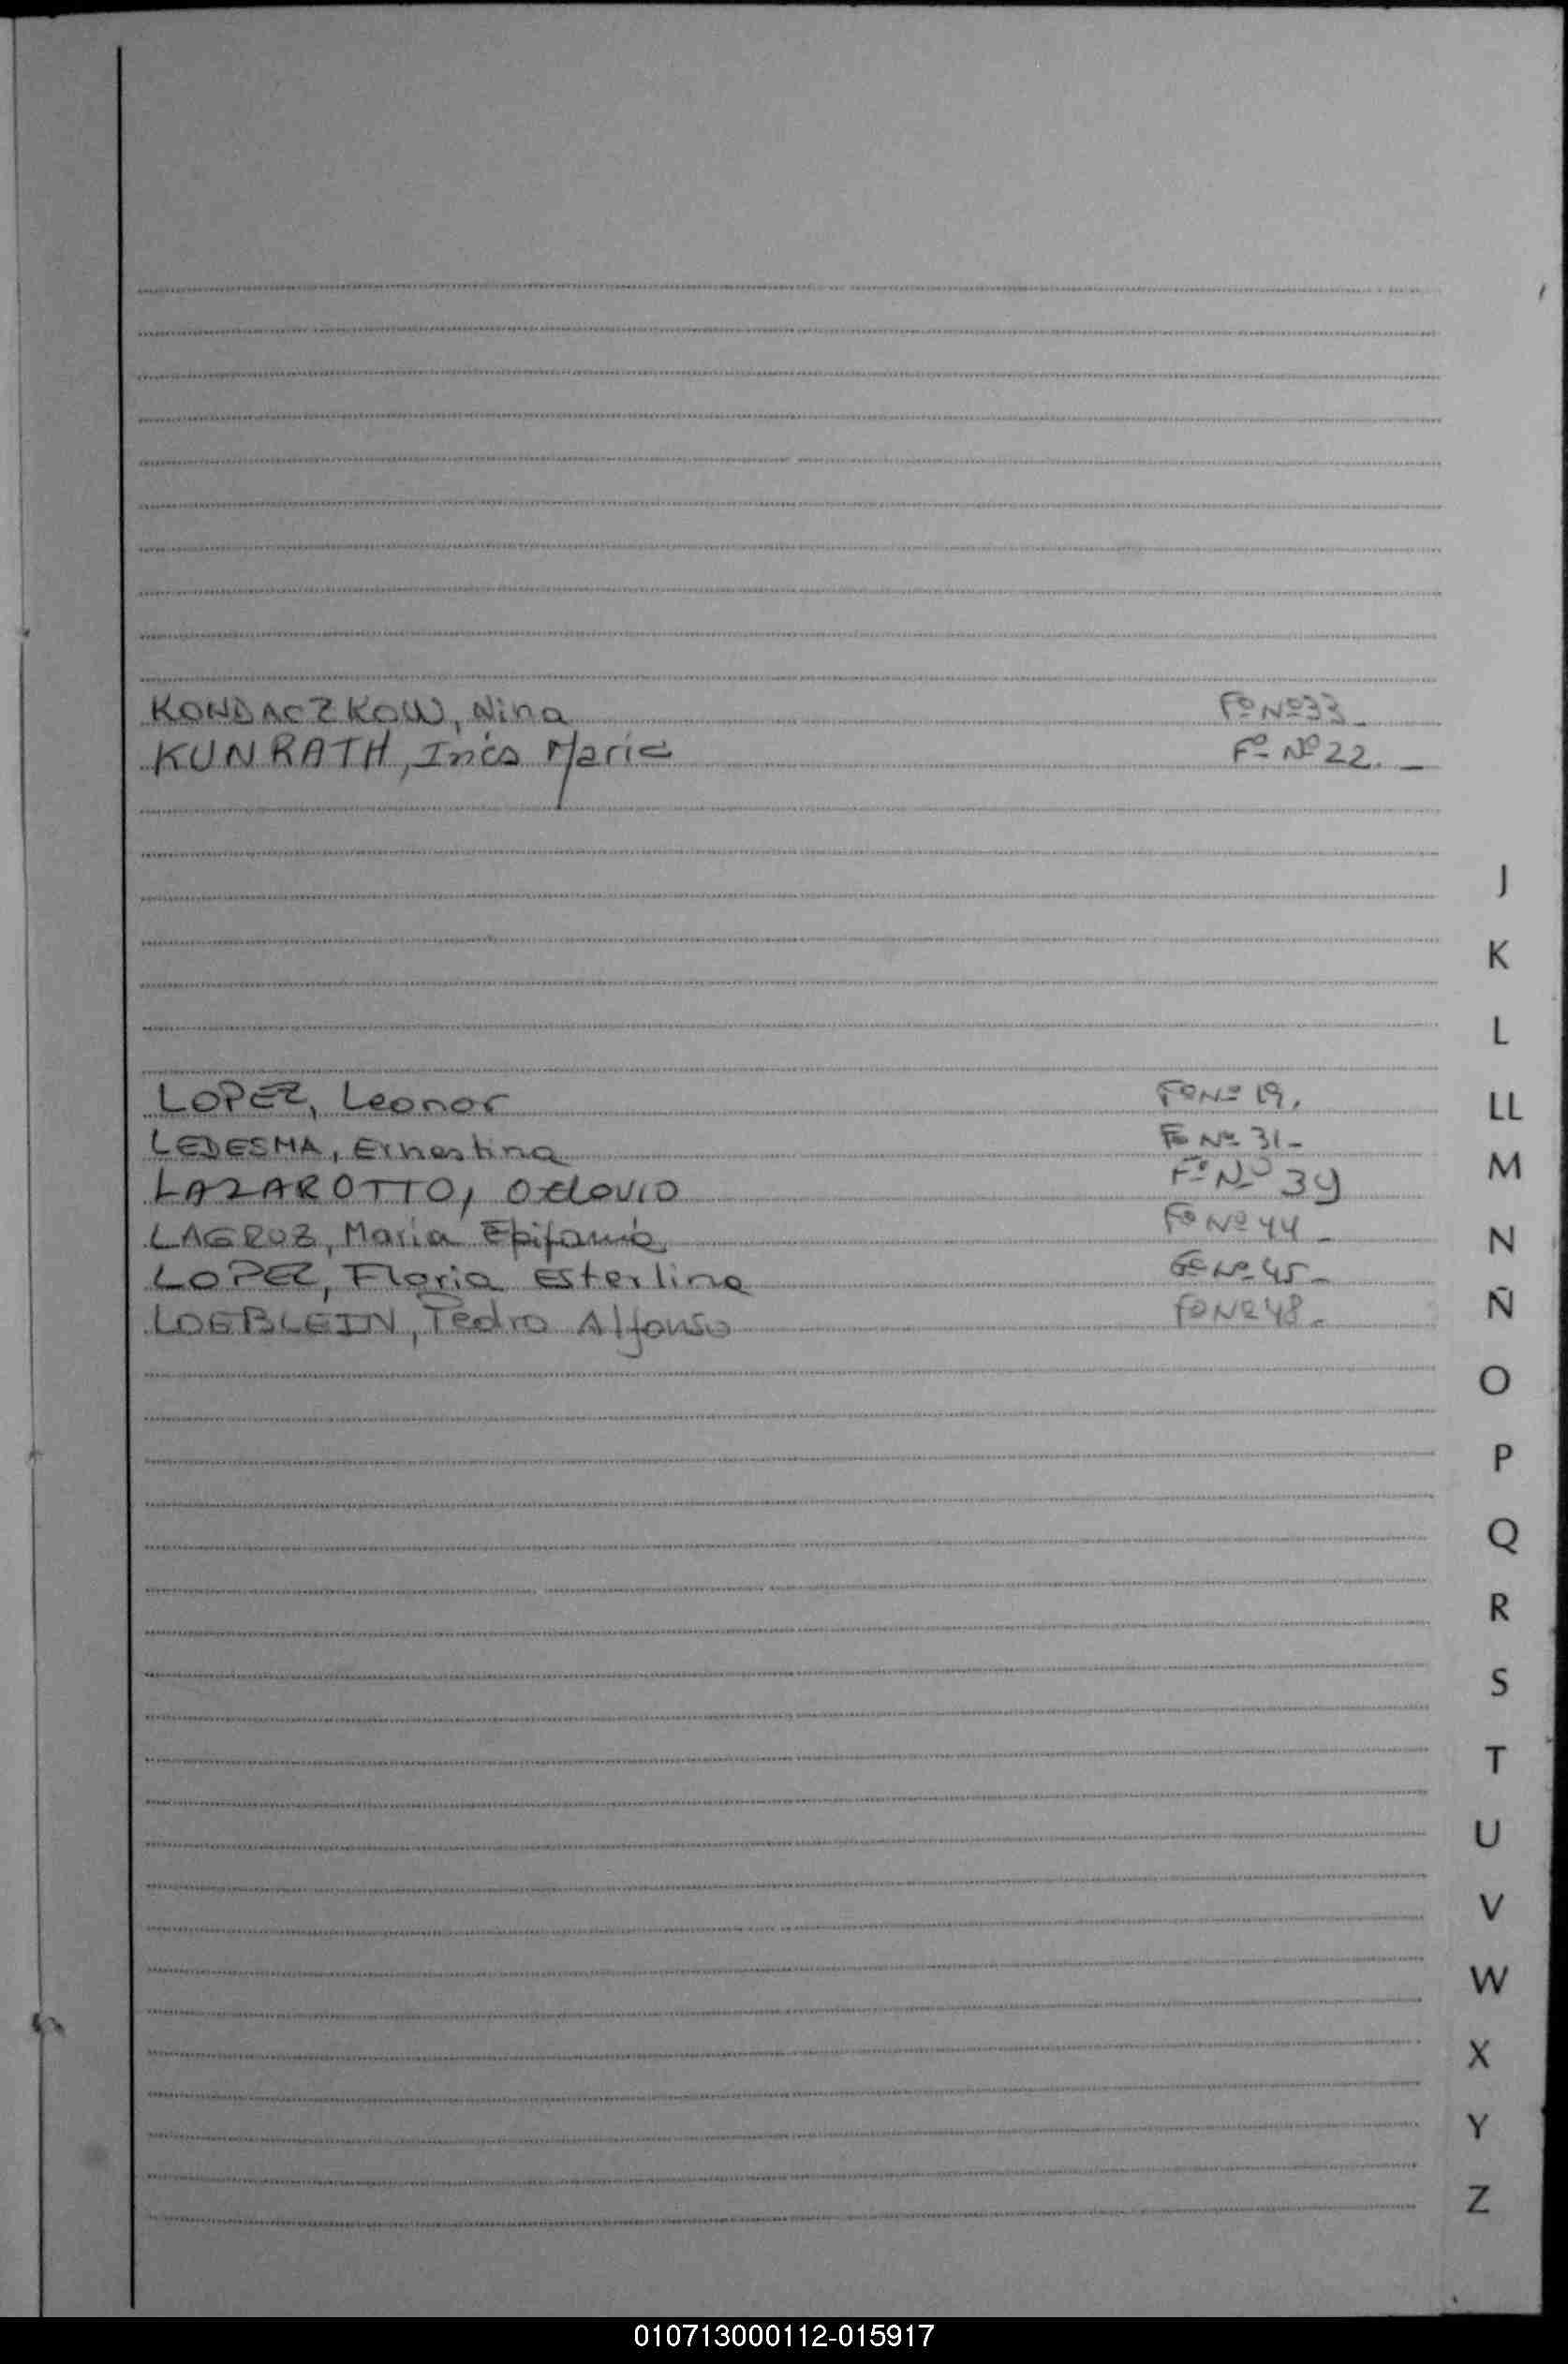 KONDACZKOW, Nina Fº Nº 33_
KUNRATH, Inés Maria Fº Nº 22. _
J
K
L
LOPEZ, Leonor Fº Nº 19.
LL
LEDESMA, Ernestina Fº Nº 31_
M
LAZAROTTO, Fº Nº 39
LAGROZ, Maria Epifania Fº Nº 44_
N
LOPEZ, Floria Esterlina Fº Nº 45_
Ñ
LOEBLEIN, Pedro Alfonso Fº Nº 48_
O
P
Q
R
S
T
U
V
W
X
Y
Z
010713000112-015917